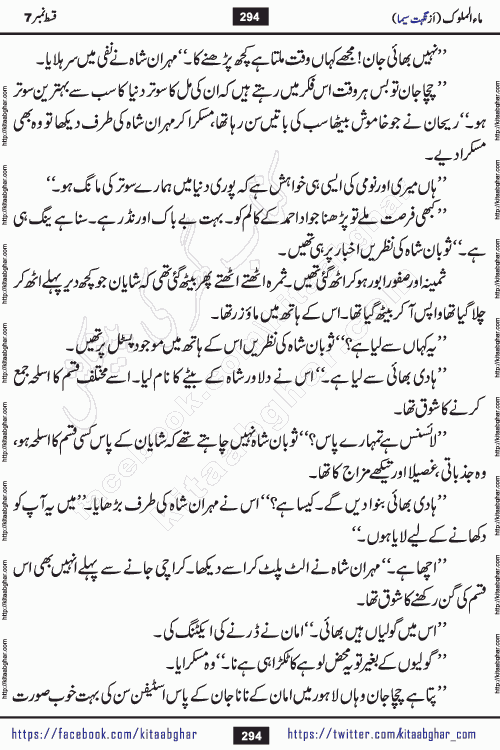 ماء الملوک (از نگہت سیما)
294
قسط نمبر 7
’’نہیں بھائی جان! مجھے کہاں وقت ملتا ہے کچھ پڑھنے کا۔‘‘ مہران شاہ نے نفی میں سر ہلایا۔
’’چچا جان تو بس ہر وقت اس فکر میں رہتے ہیں کہ ان کی مل کا سوتر دنیا کا سب سے بہترین سوتر
ہو۔‘‘ ریحان نے جو خاموش بیٹھا سب کی باتیں سن رہا تھا، مسکرا کر مہران شاہ کی طرف دیکھا تو وہ بھی
مسکرا دیے۔
’’ہاں میری اور نومی کی ایسی ہی خواہش ہے کہ پوری دنیا میں ہمارے سوتر کی مانگ ہو۔‘‘
’’کبھی فرصت ملے تو پڑھنا جواد احمد کے کالم کو۔ بہت بے باک اور نڈر ہے۔ سنا ہے ینگ ہی
ہے۔‘‘ ثوبان شاہ کی نظریں اخبار پر ہی تھیں۔
ثمینہ اور صفورا بور ہو کر اٹھ گئی تھیں۔ ثمرہ اٹھتے اٹھتے پھر بیٹھ گئی تھی کہ شایان جو کچھ دیر پہلے اٹھ کر
چلا گیا تھا واپس آ کر بیٹھ گیا تھا۔ اس کے ہاتھ میں ماؤزر تھا۔
’’یہ کہاں سے لیا ہے؟‘‘ ثوبان شاہ کی نظریں اس کے ہاتھ میں موجود پسٹل پر تھیں۔
’’ہادی بھائی سے لیا ہے۔‘‘ اس نے دلاور شاہ کے بیٹے کا نام لیا۔ اسے مختلف قسم کا اسلحہ جمع
کرنے کا شوق تھا۔
’’لائسنس ہے تمہارے پاس؟‘‘ ثوبان شاہ نہیں چاہتے تھے کہ شایان کے پاس کسی قسم کا اسلحہ ہو،
وہ جذباتی، غصیلا اور تیکھے مزاج کا تھا۔
’’ہادی بھائی بنوا دیں گے۔ کیسا ہے؟‘‘ اس نے مہران شاہ کی طرف بڑھایا۔ ’’میں یہ آپ کو
دکھانے کے لیے لایا ہوں۔‘‘
’’اچھا ہے۔‘‘ مہران شاہ نے الٹ پلٹ کر اسے دیکھا۔ کراچی جانے سے پہلے انہیں بھی اس
قسم کی گن رکھنے کا شوق تھا۔
’’اس میں گولیاں ہیں بھائی۔‘‘ امان نے ڈرنے کی ایکٹنگ کی۔
’’گولیوں کے بغیر تو یہ محض لوہے کا ٹکڑا ہی ہے نا۔‘‘ وہ مسکرایا۔
’’پتا ہے چچا جان وہاں لاہور میں امان کے نانا جان کے پاس اسٹیفن سن کی بہت خوب صورت
https://facebook.com/kitaabghar
294
https://twitter.com/kitaabghar_com
http://kitaabghar.com